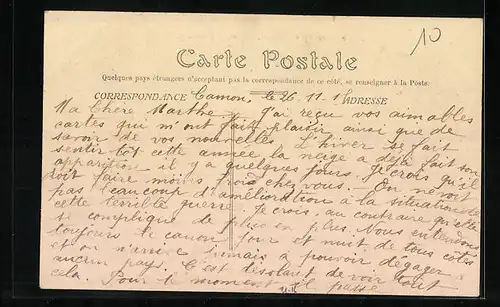 10
Carte Postale
Quelques pays étrangers n'acceptant pas la correspondance de ce côté, se renseigner à la Poste.
CORRESPONDANCE Camon, le 26 11 1 ADRESSE
Ma Chère Marthe, J'ai reçu vos aimables
cartes qui m'ont fait plaisir ainsi que de
savoir de vos nouvelles. L'hiver se fait
sentir tôt cette année la neige a déjà fait son
apparition il y a quelques jours. Je crois qu'il
doit faire moins froid chez vous. On ne voit
pas beaucoup d'amélioration à la situation de
cette terrible guerre. Je crois, au contraire qu'elle
se complique de plus en plus. Nous entendons
toujours le canon jour et nuit de tous côtés
et on n'arrive jamais à pouvoir dégager
aucun pays. C'est désolant de voir tout
cela. Pour le moment il passe